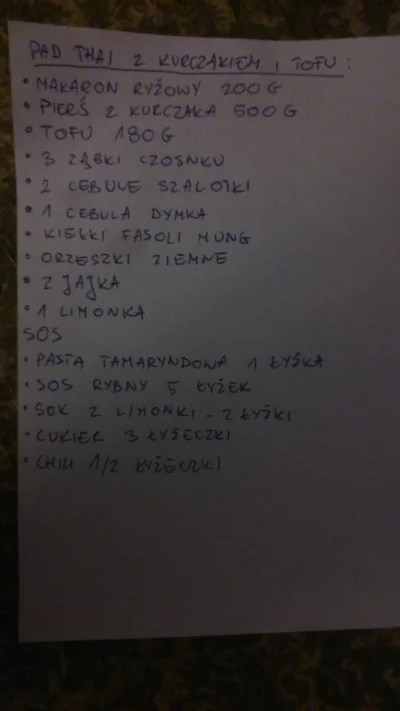 PAD THAI Z KURCZAKIEM I TOFU:
• MAKARON RYŻOWY 200 G
• PIERŚ Z KURCZAKA 500 G
• TOFU 180 G
• 3 ZĄBKI CZOSNKU
• 2 CEBULE SZALOTKI
• 1 CEBULA DYMKA
• KIEŁKI FASOLI MUNG
• ORZESZKI ZIEMNE
• 2 JAJKA
• 1 LIMONKA
SOS
• PASTA TAMARYNDOWA 1 ŁYŻKA
• SOS RYBNY 5 ŁYŻEK
• SOK Z LIMONKI - 2 ŁYŻKI
• CUKIER 3 ŁYŻECZKI
• CHILI 1/2 ŁYŻECZKI